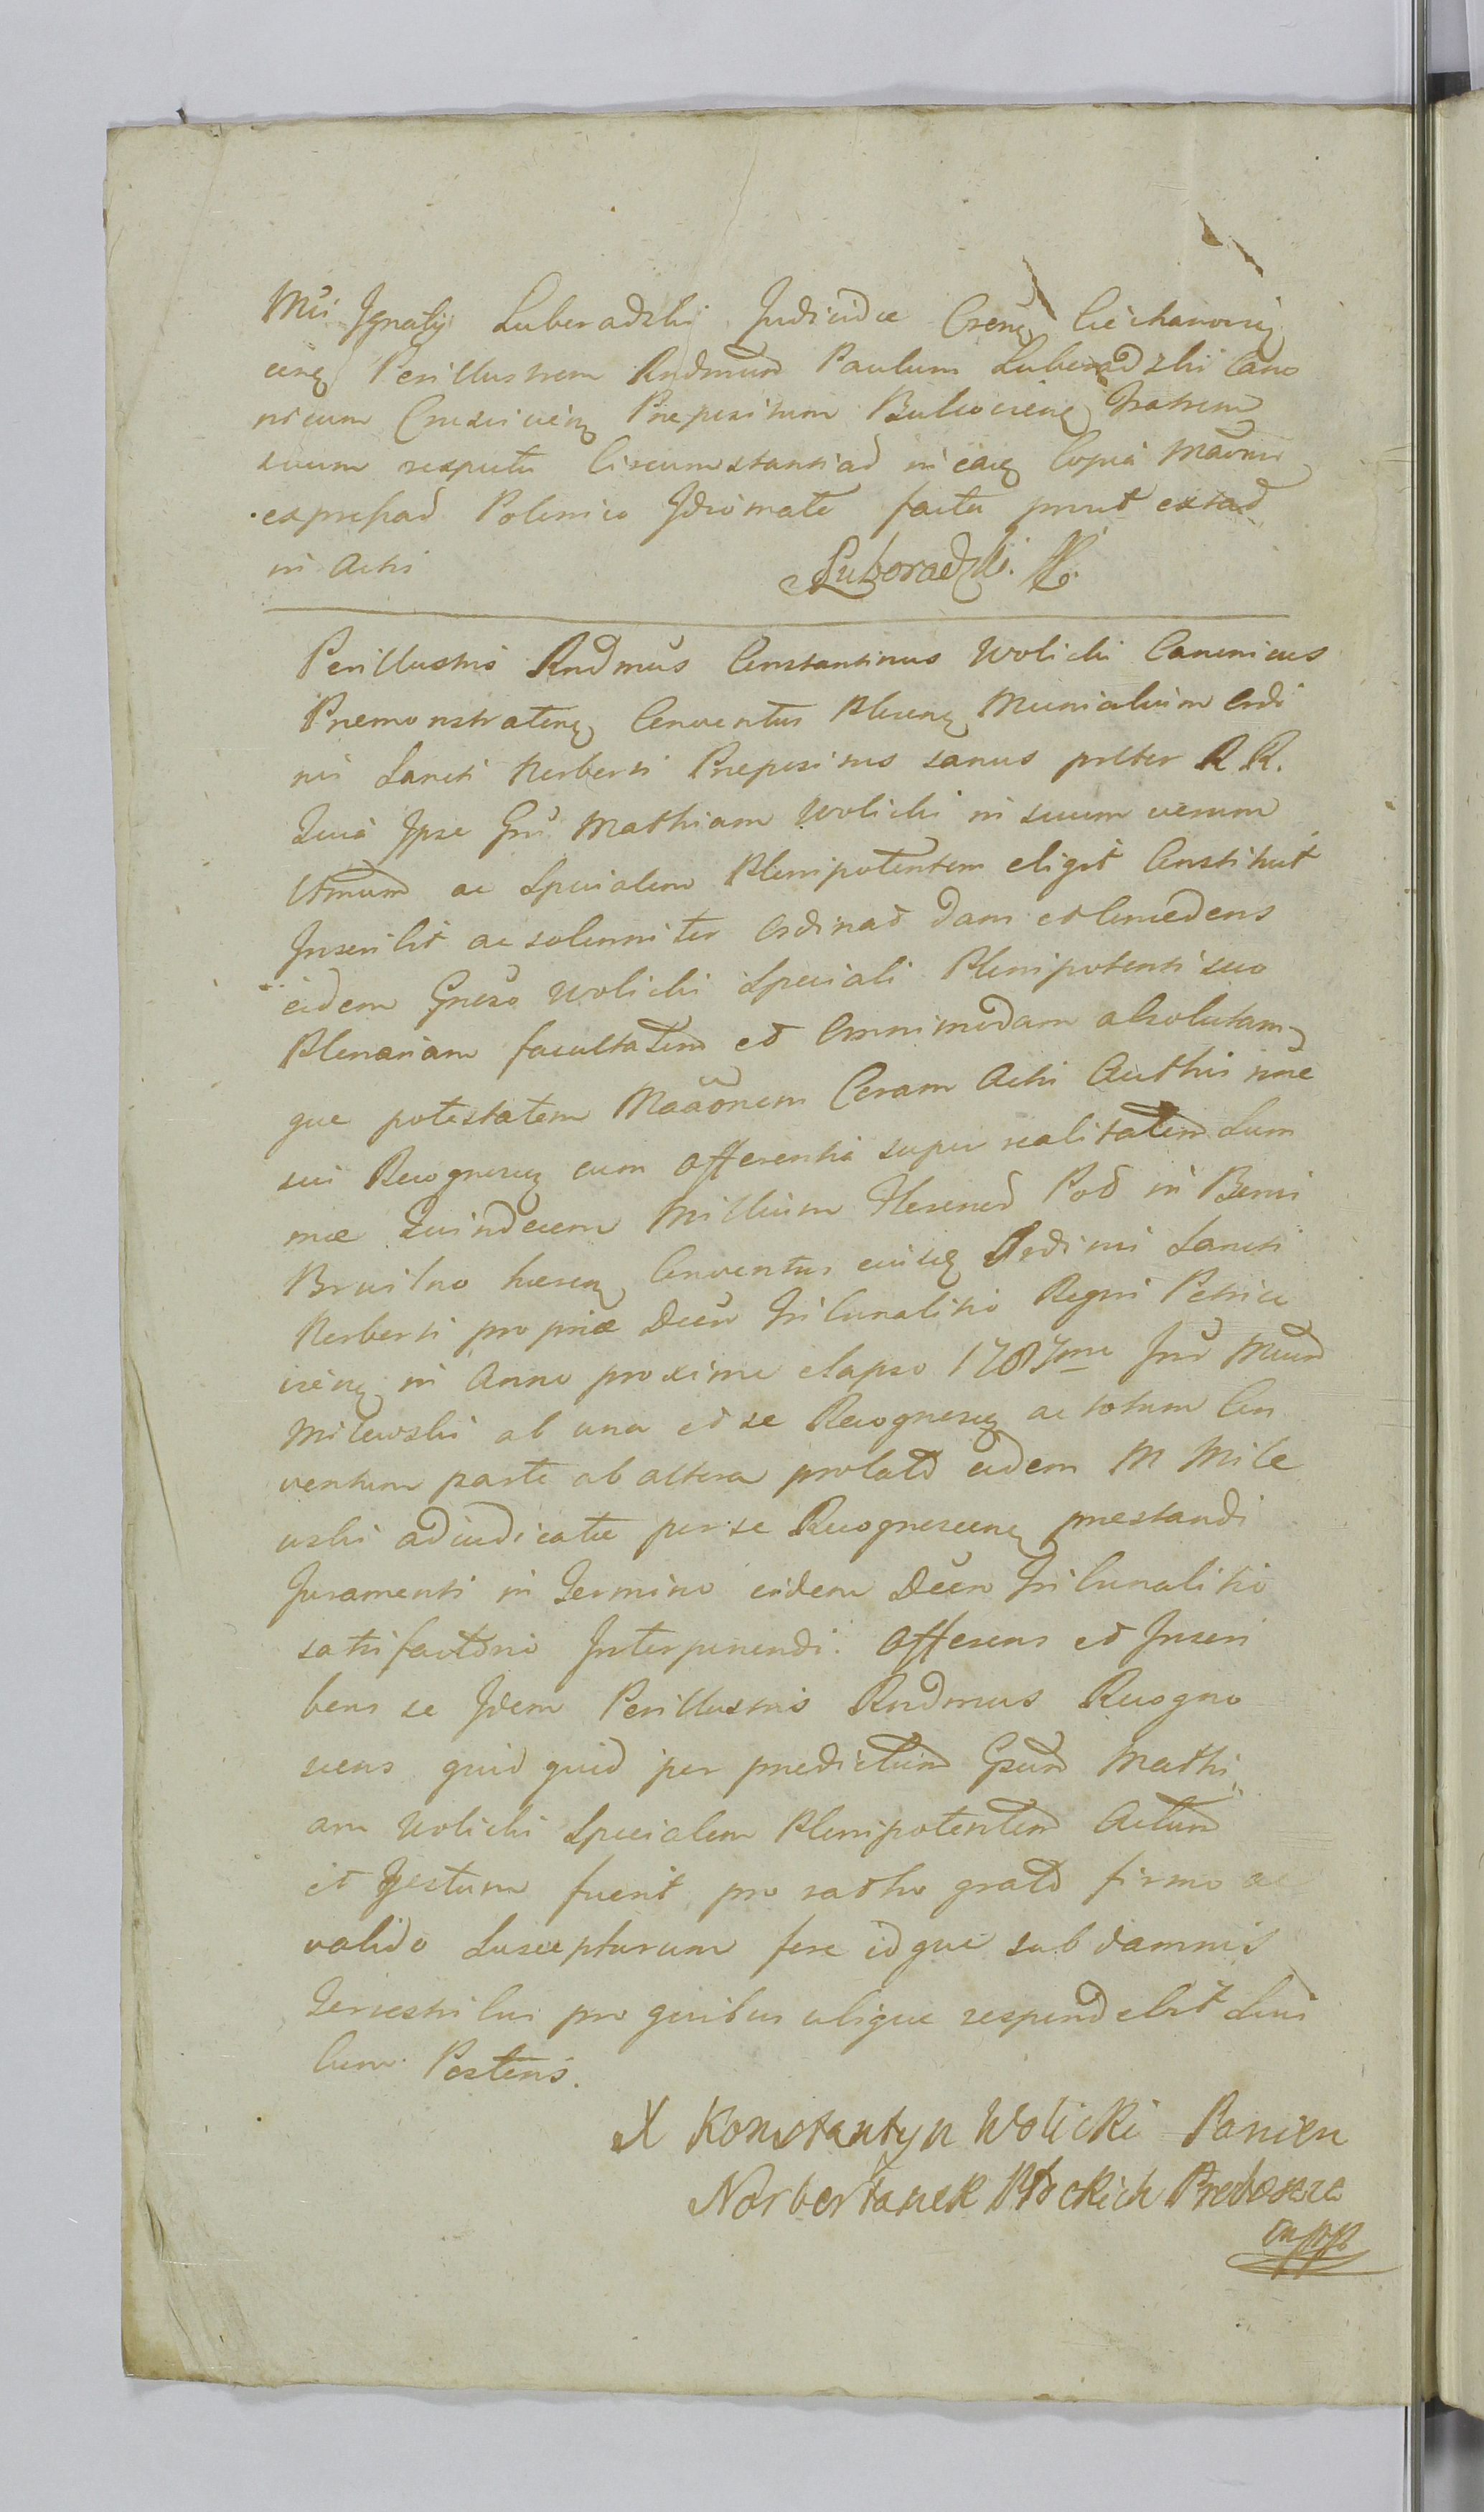 Mci Ignatij Luboradzki Judicidae Crens Ciechanovie
cens Perillustrem Rndmum Paulum Luboradzki Cano
nicum Crusvicien Prepositum Bulcoviens Fratrem
suum respectu Circumstantiad in eaq Copia Maonis
expressad Polonico Idiomate facta prout extad
in Actis Luboradzki. K.
Perillustris Rndmus Constantinus Wolicki Canonicus
Premonstratens Conventus Plocens Monialium Ordi
nis Sancti Norberti Prepositus sanus prtter R R.
Quia Ipse Gsū Mathiam Wolicki in suum verum
Ltmum ac Specialem Plenipotentem eligit Constituit
Inscribit ac solenniter Ordinat dans et Concedens
eidem Gneso Wolicki Speciali Plenipotenti suo
Plenariam facultatem et Omnimodam absolutam
que potestatem Maaonem Coram Actis Authis nne
sui Recognoscens cum Offerentia super realitatem Sum
mae Quindecem Millium Florenod Pod in Bonis
Bruilno haeren Conventus eiusq Ordinis Sancti
Norberti propriae Decreto Tribunalitio Regni Petrico
viens in Anno proxime elapso 1787mo Int Mcum
Milewski ab una et se Recognoscens ac totum Con
ventum parte ab altera prolato eidem M Mile
wski adiudicatae per se Recognoscens prestandi
Juramenti in Termino eidem Decreto Tribunalitio
satisfactorio Interponendi. Offerens et Inscri
bens se Idem Perillustris Rndmus Recogno
scens quid quid per predictum Gsum Mathi
am Wolicki Specialem Plenipotentem Actum
et Gestum fuerit pro ratho grato firmo ac
valido Suscepturum fore idque sub damnis
Terrestribus pro quibus ubique respondebit Suis
Cum Posteris.
X Konstantyn Wolicki Panien
Norbertanek Płockich Proboszcz
mpp